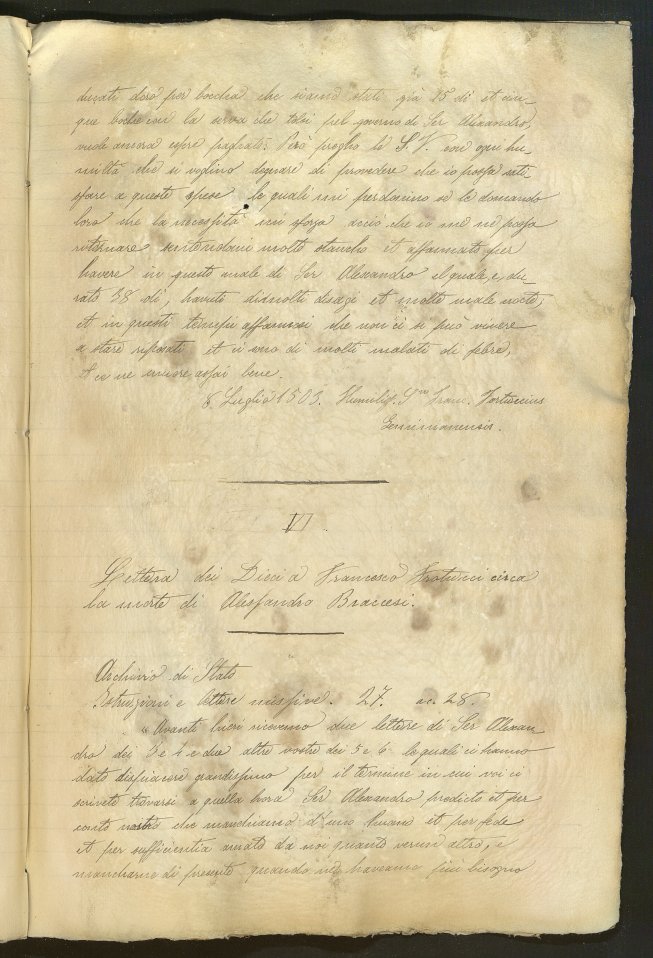 ducati doro per boccha che siamo stati già 25 dì et cin-
que boche con la serva che tolsi pel governo di Ser Alexandro,
vuole ancora essere paghata. Però priegho le S.V. con ogni hu-
miltà che si voglino degnare di provedere che io possa satis-
fare a queste spese le quali mi perdonino se le domando
loro che la necessità mi sforza acciò che io me ne possa
ritornare sentendomi molto stancho et affannato per
havere in questo male di Ser Alexandro el quale è du-
rato 38 dì, havuto dimolti disagi et molte male nocte,
et in questi tempi affannosi che non ci si può vivere
a stare riposati et ci sono di molti malati di febre,
et ce ne muore assai bene.
8 Luglio 1503. Humilis. Franc. Fortuccius
Geminianensis.
VI.
Lettera dei Dieci a Francesco Frotucci circa
la morte di Alessandro Braccesi.
Archivio di Stato
Istruzioni e lettere missive. 27. ac. 28.
"Avanti hieri ricevemo due lettere di Ser Alexan-
dro dei 3 e 4 e due altre vostre dei 5 e 6 le quali ci hanno
dato dispiacere grandissimo per il termine in cui voi ci
scrivete trovarsi a quella hora Ser Alexandro predicto et per
conto nostro che manchiamo d'uno huomo et per fede
et per sufficientia amato da noi quanto verun altro, e
mancharne di presente quando ne haveamo più bisogno